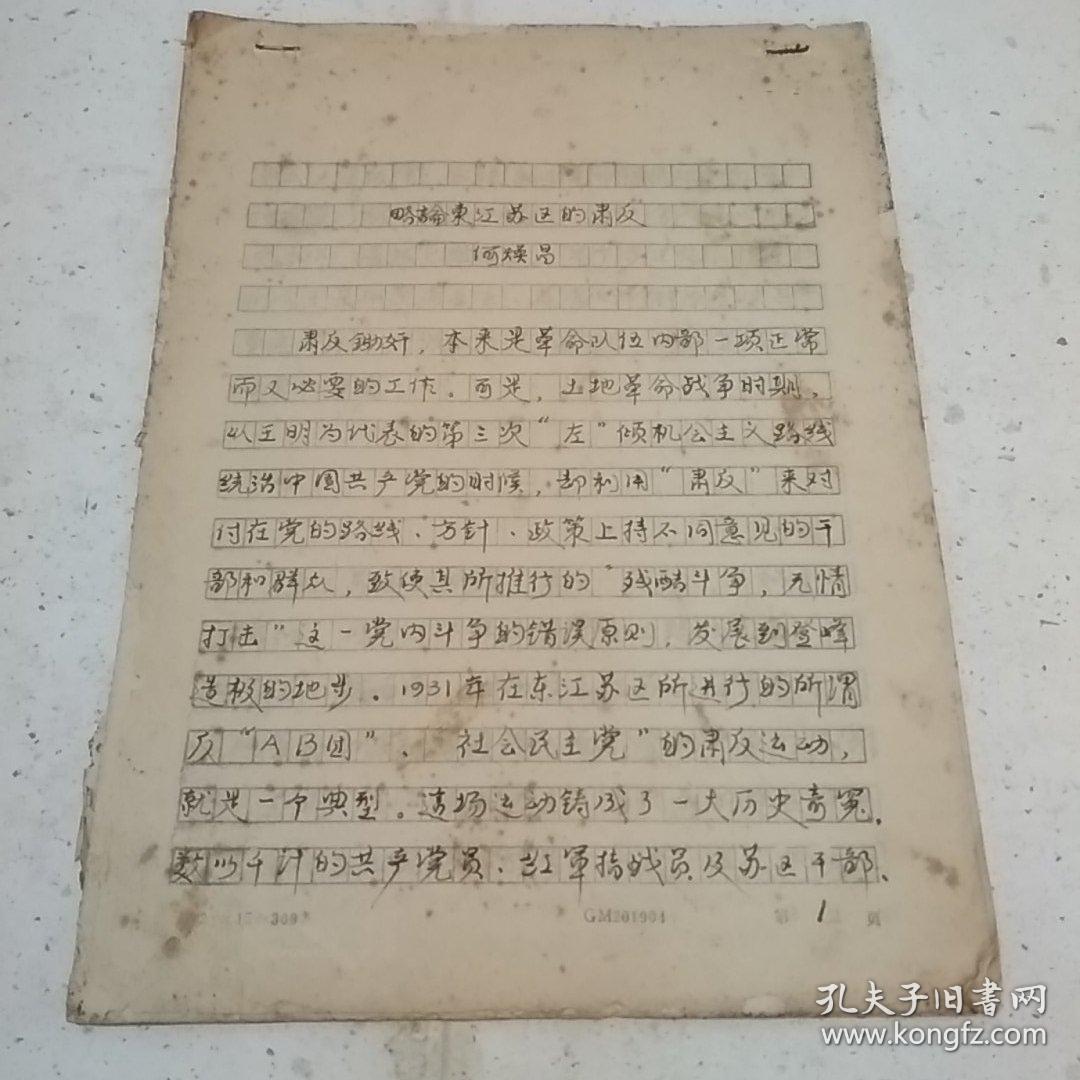 略論東江苏区的肃反
何焕昌
肃反锄奸，本来是革命队伍内部一项正常
而又必要的工作。可是，土地革命战争时期，
以王明为代表的第三次“左”倾机会主义路线
统治中国共产党的时候，却利用“肃反”来对
付在党的路线、方针、政策上持不同意见的干
部和群众，致使其所推行的“残酷斗争，无情
打击”这一党内斗争的错误原则，发展到登峰
造极的地步。1931年在东江苏区所进行的所谓
反“AB团”、社会民主党”的肃反运动，
就是一个典型。这场运动铸成了一大历史奇冤。
数以千计的共产党员、红军指战员及苏区干部、
GM201904 第1页
孔夫子旧书网
www.kongfz.com